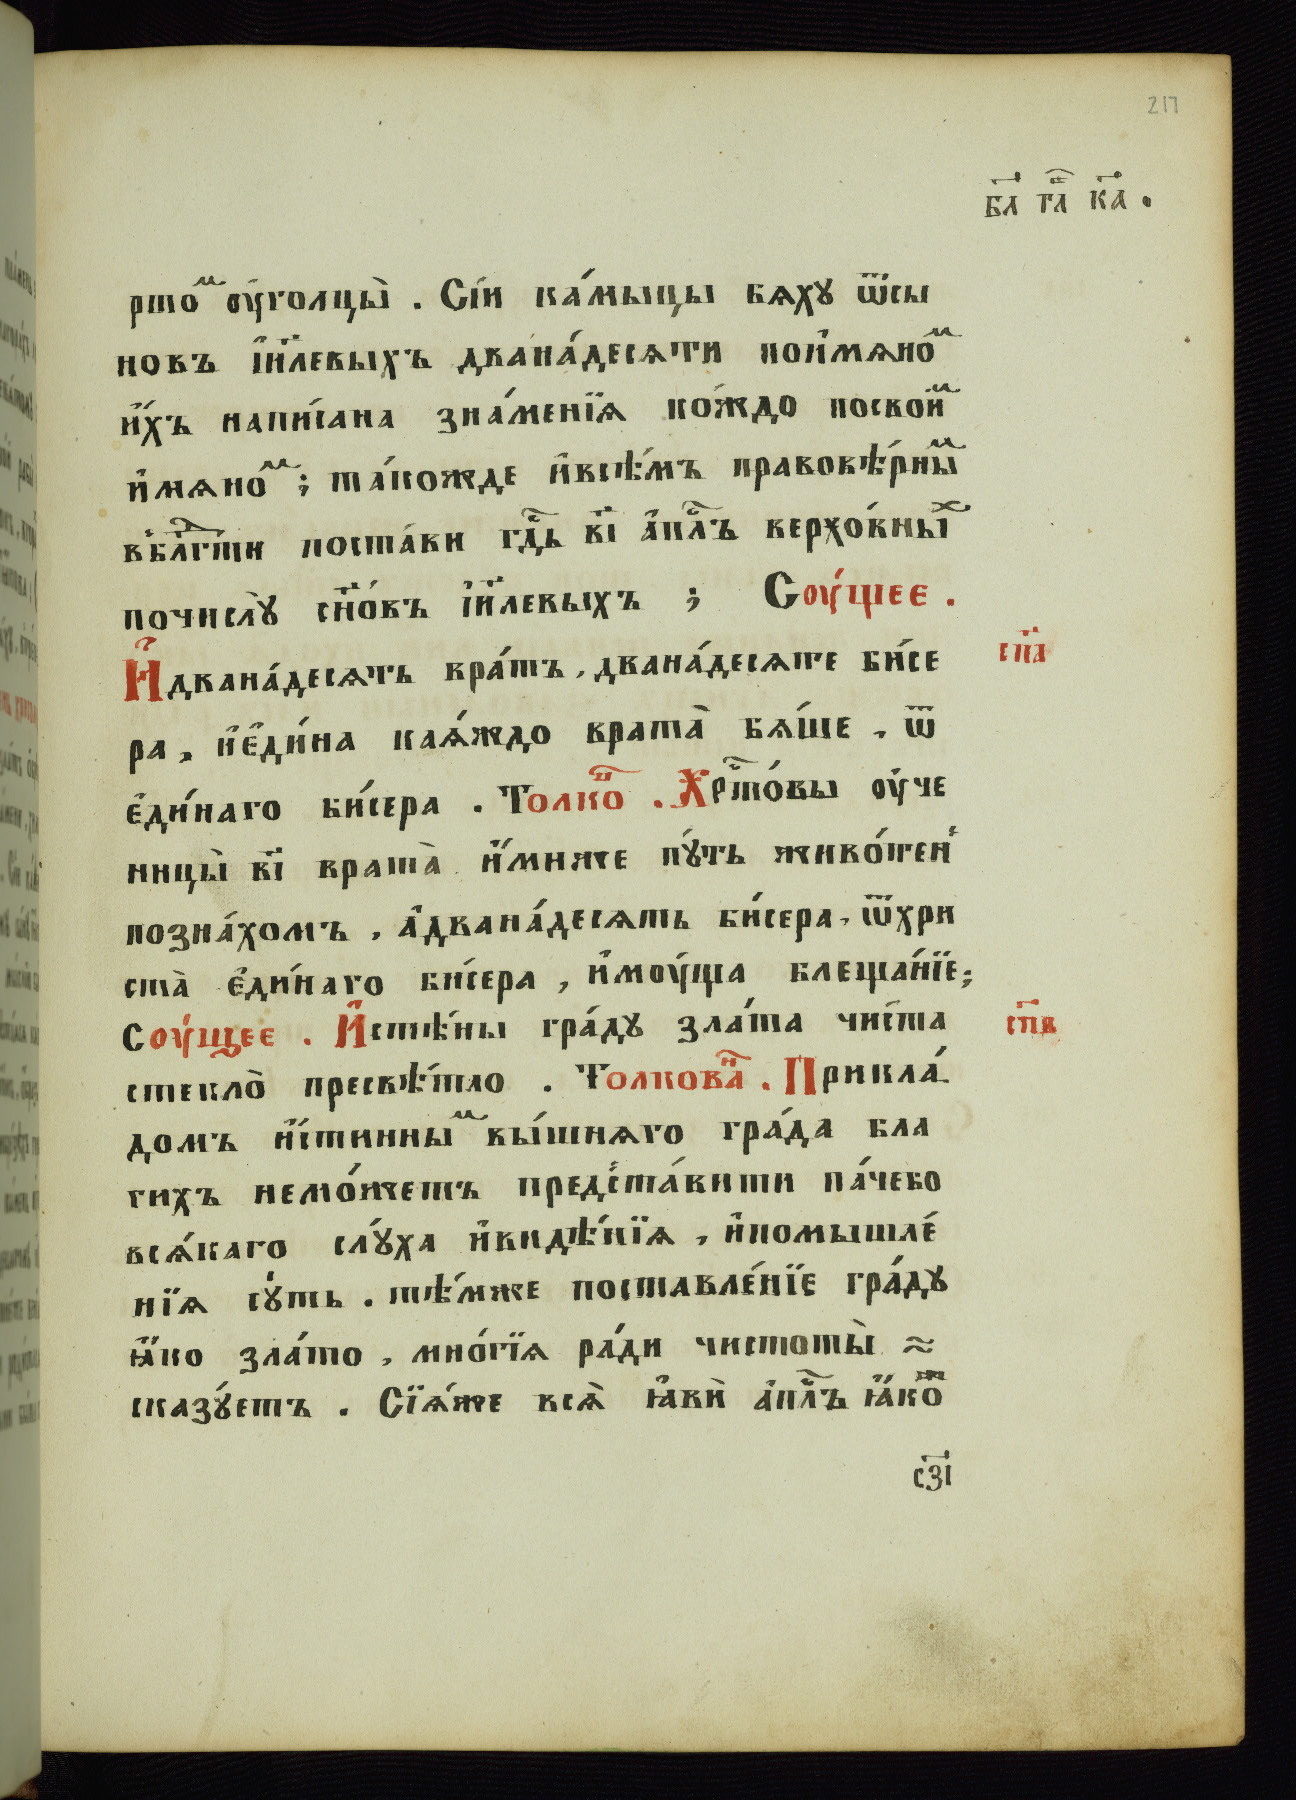 217
в҃л гл҃ к҃а .
ртоⷨ ѹ҆́голцы̀ . Сі́и ка́мыцы бѧху ѿсы
новъ і҆и҃левыхъ двана́десѧти пои҆мѧноⷨ
и҆́хъ напи́сана зна́менїѧ ко́ждо посвоиⷨ
и҆мѧноⷨ ; та́кожде и҆всѣ́мъ правовѣ́рныⷨ
вблⷢ҇гти поста́ви гдⷭ҇ь в҃і а҆пⷭ҇лъ верхо́вныⷯ
почислу̀ сн҃о́въ і҆и҃левыхъ ; Соу́щее .
И҆двана́десѧть вра́тъ , двана́десѧте би́се
ра , и҆є҆ди́на каѧ́ждо врата̀ бѧ́ше , ѿ
є҆ди́наго би́сера . Толкоⷩ҇ . Хрⷭ҇то́вы ѹ҆че
ницы̀ в҃і врата̀ и҆́миже пу́ть живо́теⷩ
позна́хомъ , а҆двана́десѧть би́сера , ѿхри
ста̀ є҆ди́наго би́сера , и҆моу́ща блеща́нїе ;
Соу́щее . И҆стѣ́ны гра́ду зла́та чи́ста
стекло̀ пресвѣ́тло . Толковаⷩ҇ . Прикла́
домъ и҆́стинныⷨ вы́шнѧго гра́да бла
гихъ немо́жетъ предⷭ҇та́вити па́чебо
всѧ́каго слу́ха и҆видѣ́нїѧ , и҆помышле́
нїѧ су́ть . тѣ́мже поставле́нїе гра́ду
ꙗ҆́ко зла́то , мно́гїѧ ра́ди чистоты̀ ≈
сказу́етъ . Сїѧ́же всѧ̀ ꙗ҆вѝ а҆пⷭ҇лъ ꙗ҆́коⷤ
сп҃а
сп҃в
сз҃і